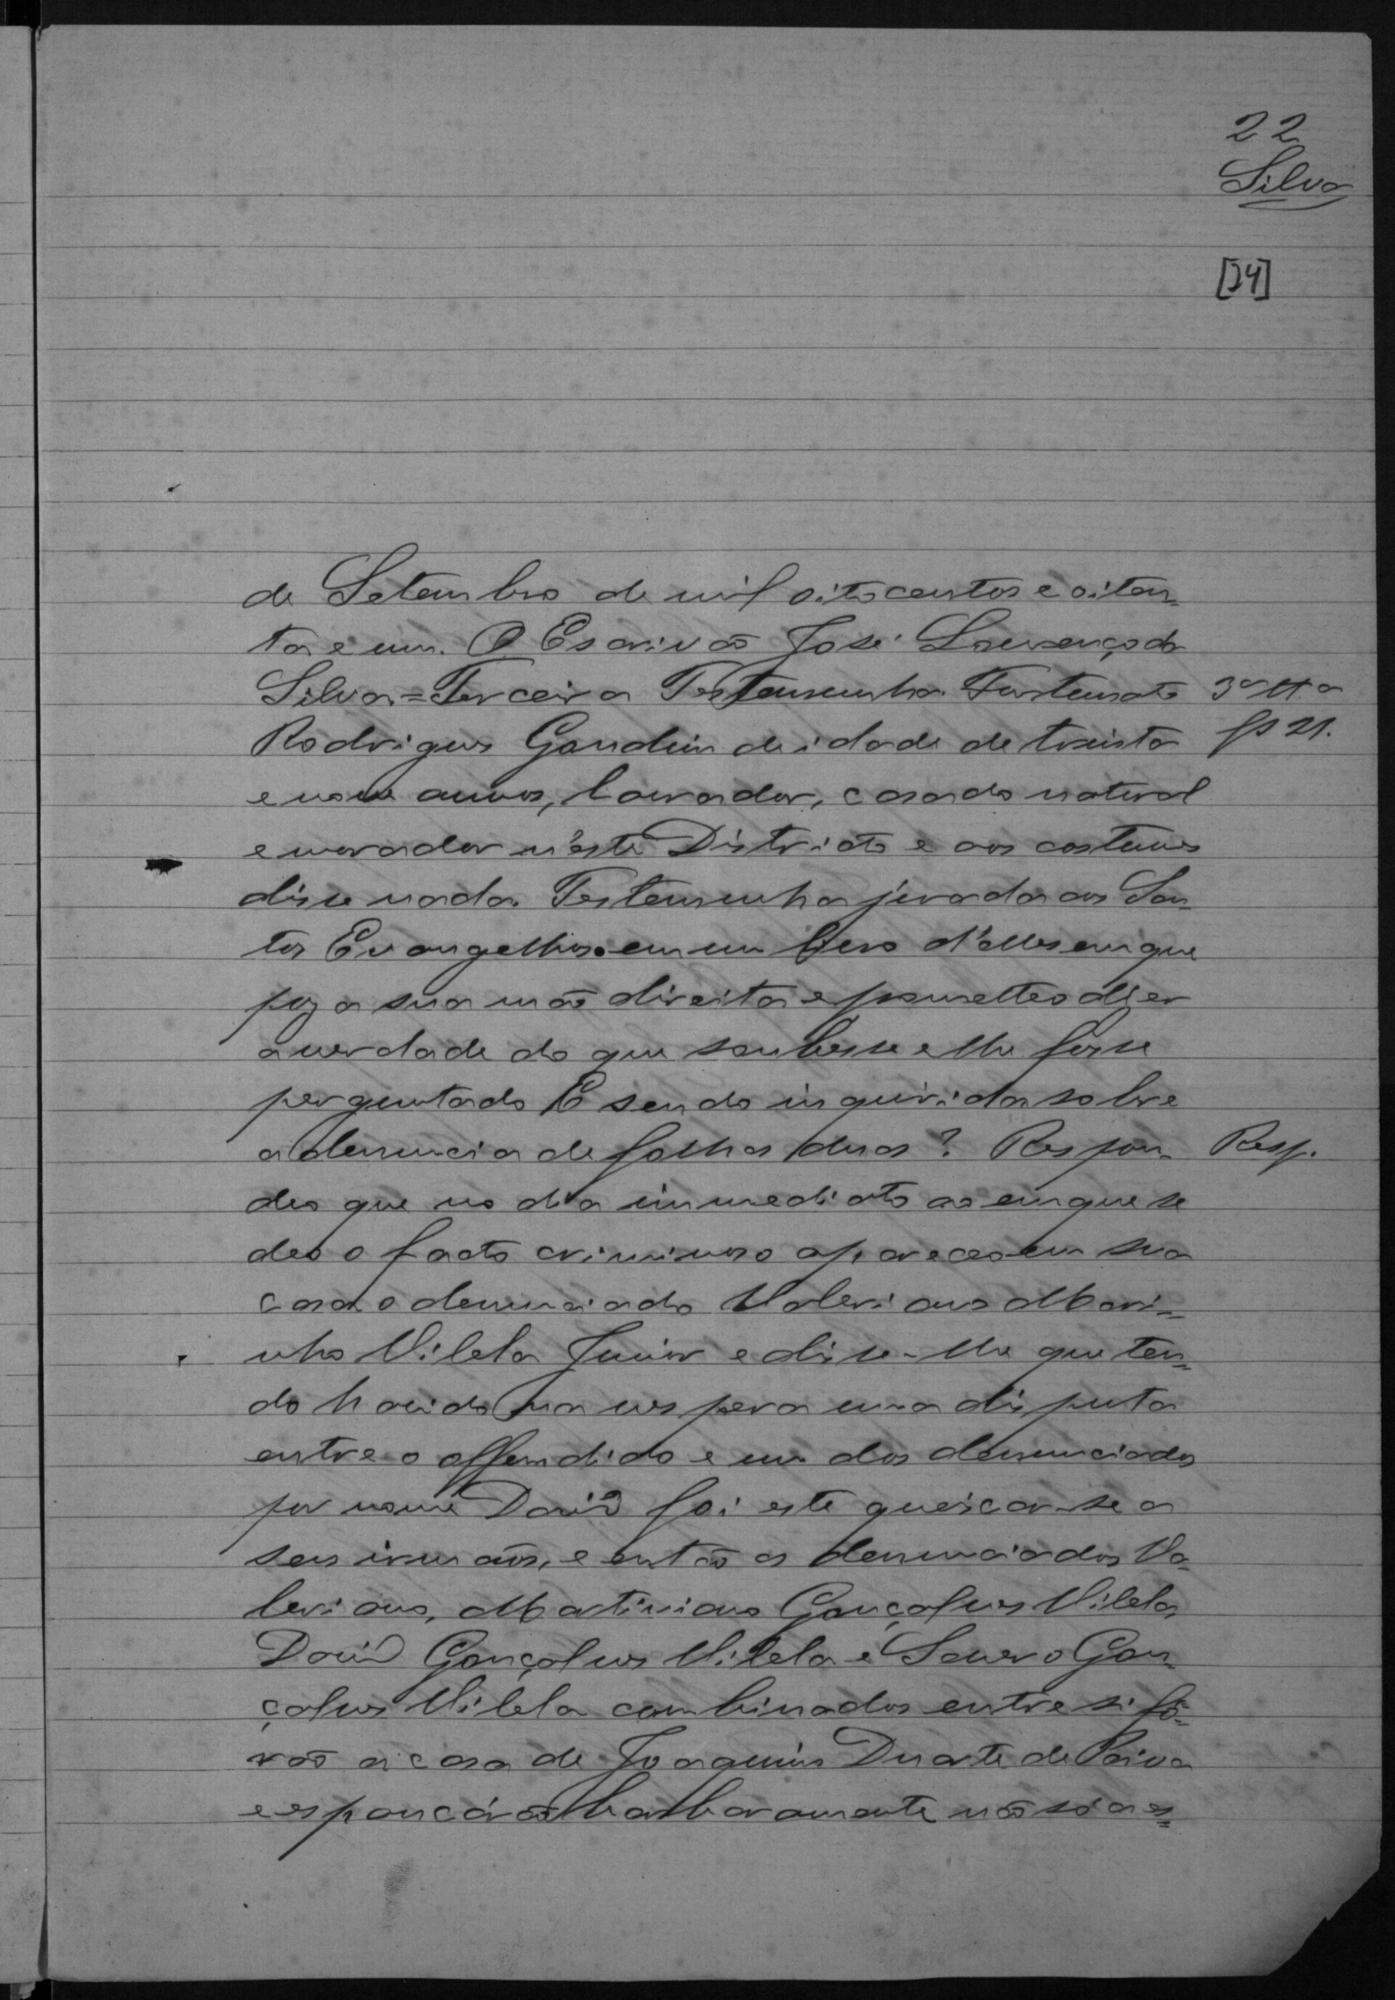 22
Silva
[24]
de Setembro de mil oitocentos e oiten=
ta e um. O Escrivão José Lourenço da
Silva = Terceira Testemunha Fortunato
3ª ttª
fs 21.
Rodrigues Gondim de idade de trinta
e nove annos, lavrador, casado natural
e morador n'este Districto e aos costumes
disse nada. Testemunha jurada aos San=
tos Evangelhos em um livro d'elles em que
poz a sua mão direita e prometteo dizer
a verdade do que soubesse e lhe fosse
perguntado E sendo inquirida sobre
a denuncia de folhas duas? Respon=
Resp.
deo que no dia immediato ao em que se
deo o facto criminoso apareceo em sua
casa o denunciado Valeriano Mari=
nho Vilela Junior e disse-lhe que ten=
do havido na vespera uma disputa
entre o offendido e um dos denunciados
por nome David foi este queicar-se a
seus irmãos, e então os denunciados Va=
leriano, Martiniano Gonçalves Vilela,
David Gonçalves Vilela e Severo Gon=
çalves Vilela combinados entre si fô=
rão a casa de Joaquim Duarte de Paiva
e espancárão barbaramente não só a es=